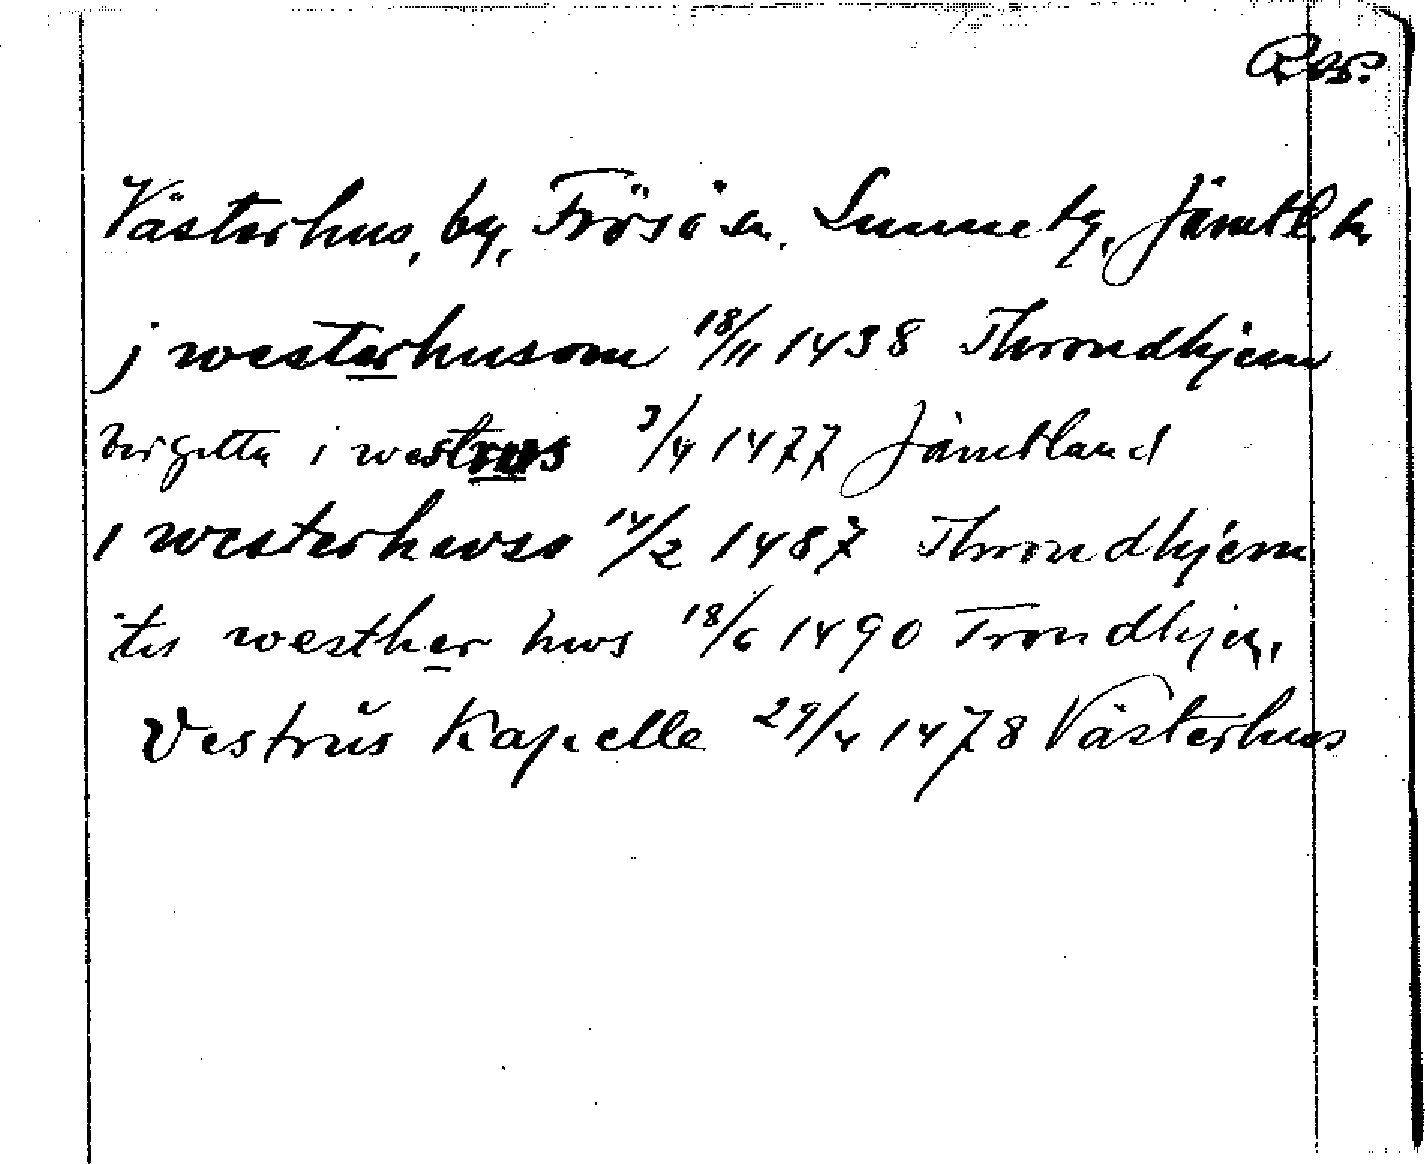 Västerhus, by, Frösö sn. Sunne tg, Jämtl. l.
j westerhusom 18/11 1438 Throndhjem
birgitta i westrus 3/4 1477 Jämtland
i westerhwso 14/2 1487 Throndhjem
til westher hws 18/6 1490 Trondhjem
Vestrŭs Kapelle 29/4 1478 Västerhus